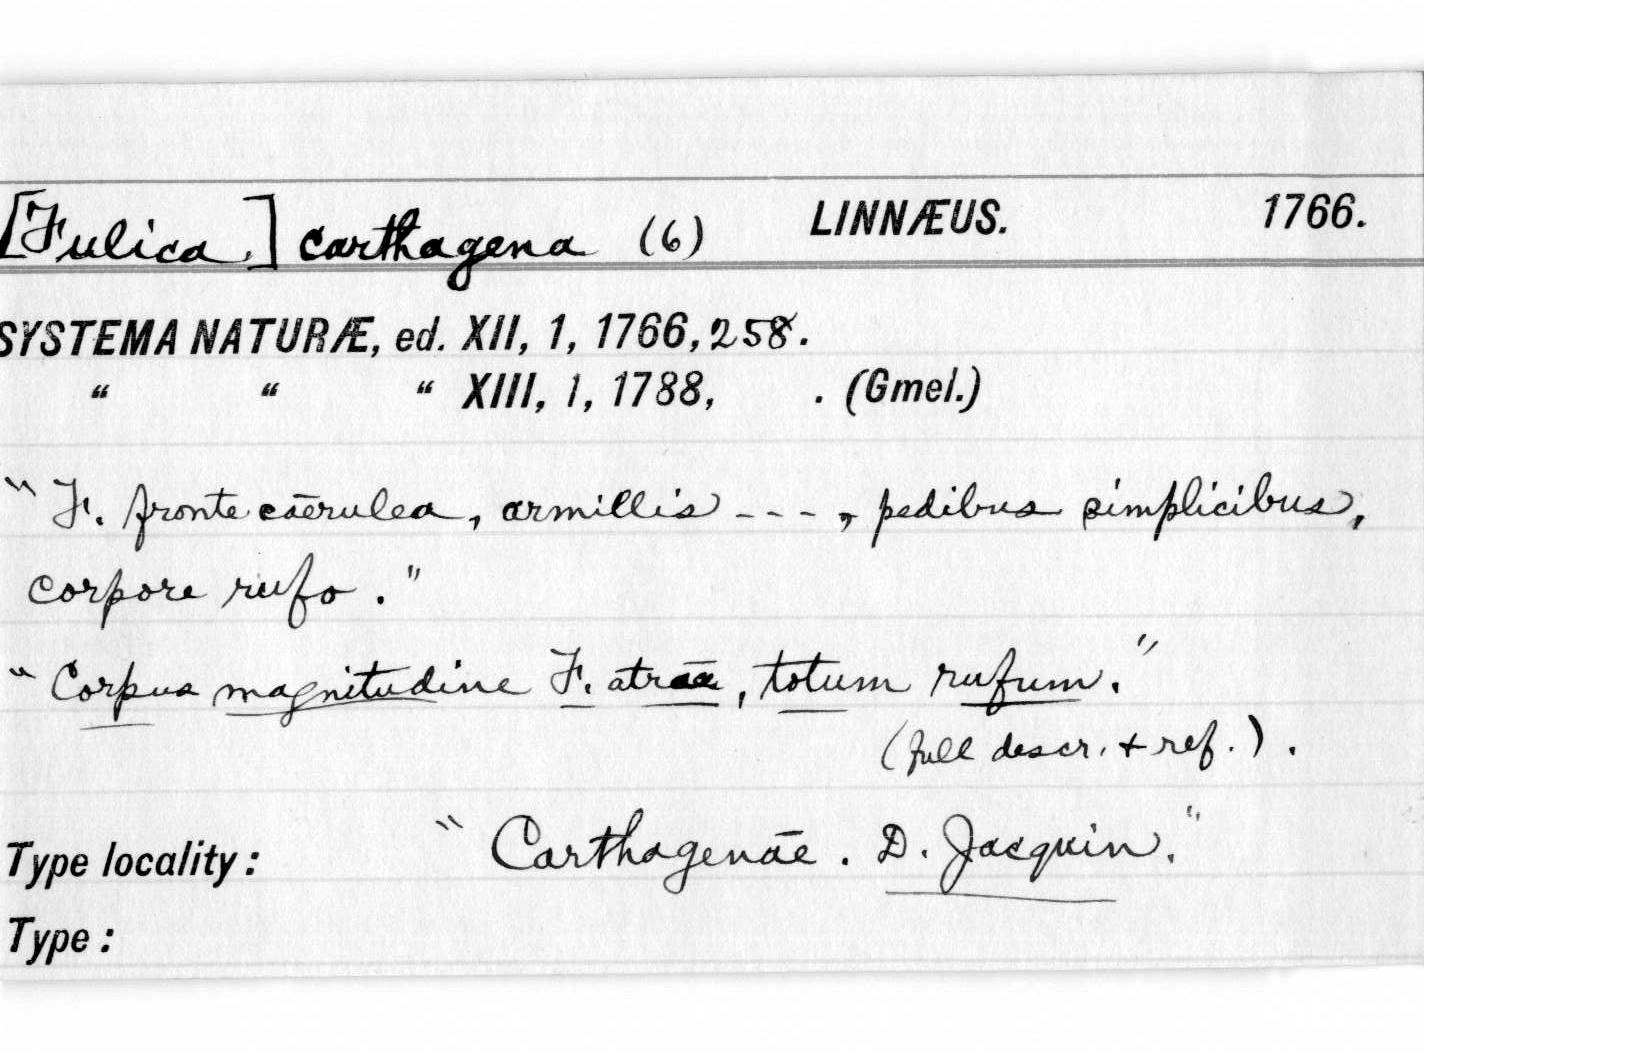 [Fulica.] carthagena (6) LINNÆUS. 1766.
SYSTEMA NATURÆ, ed. XII, 1, 1766, 258.
“ “ “ XIII, 1, 1788, . (Gmel.)
“F. fronte cāērulea, armillis - - - , pedibus simplicibus,
corpore rufo.”
“Corpus magnitudine F. atrāā, totum rufum.”
(full descr. + ref.).
Type locality: “Carthagenāē. D. Jacquin.”
Type: